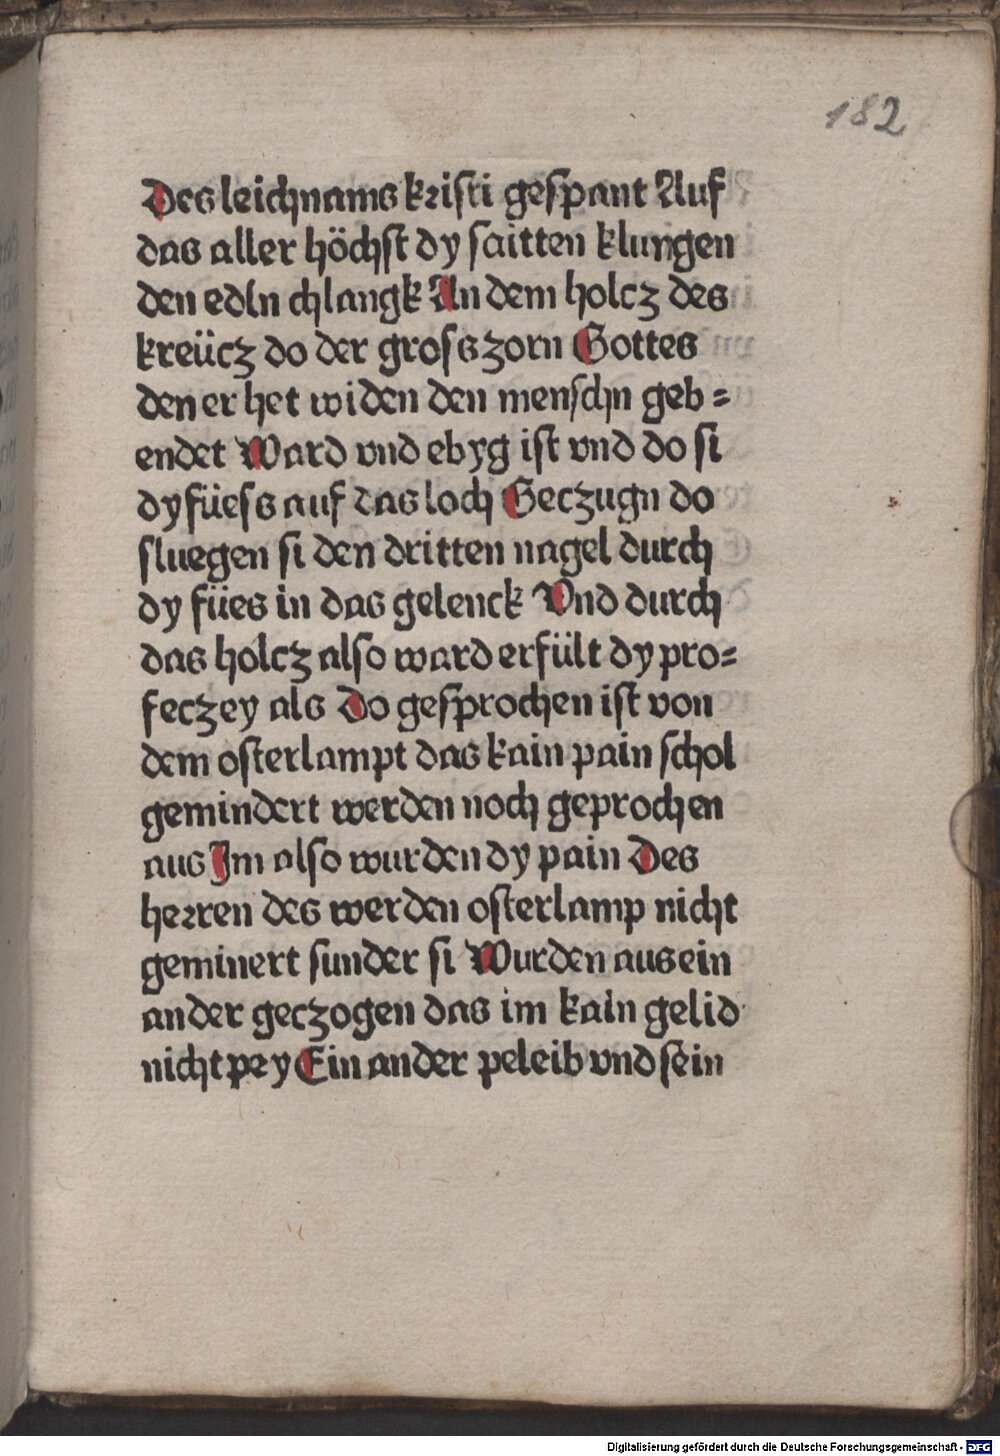 182
Des leichnams kristi gespant Auf
das aller höchst dy saitten klungen
den edln chlangk An dem holcz des
kreücz do der gross zorn Gottes
den er het widen den menschn geb=
endet Ward vnd ebyg ist vnd do si
dy füess auf das loch Geczugn do
sluegen si den dritten nagel durch
dy fües in das gelenck Vnd durch
das holcz also ward erfült dy pro=
feczey als Do gesprochen ist von
dem osterlampt das kain pain schol
gemindert werden noch geprochen
aus Im also wurden dy pain Des
herren des werden osterlamp nicht
geminert sunder si Wurden aus ein
ander geczogen das im kain gelid
nicht pey Ein ander peleib vnd sein
Digitalisierung gefördert durch die Deutsche Forschungsgemeinschaft - DFG